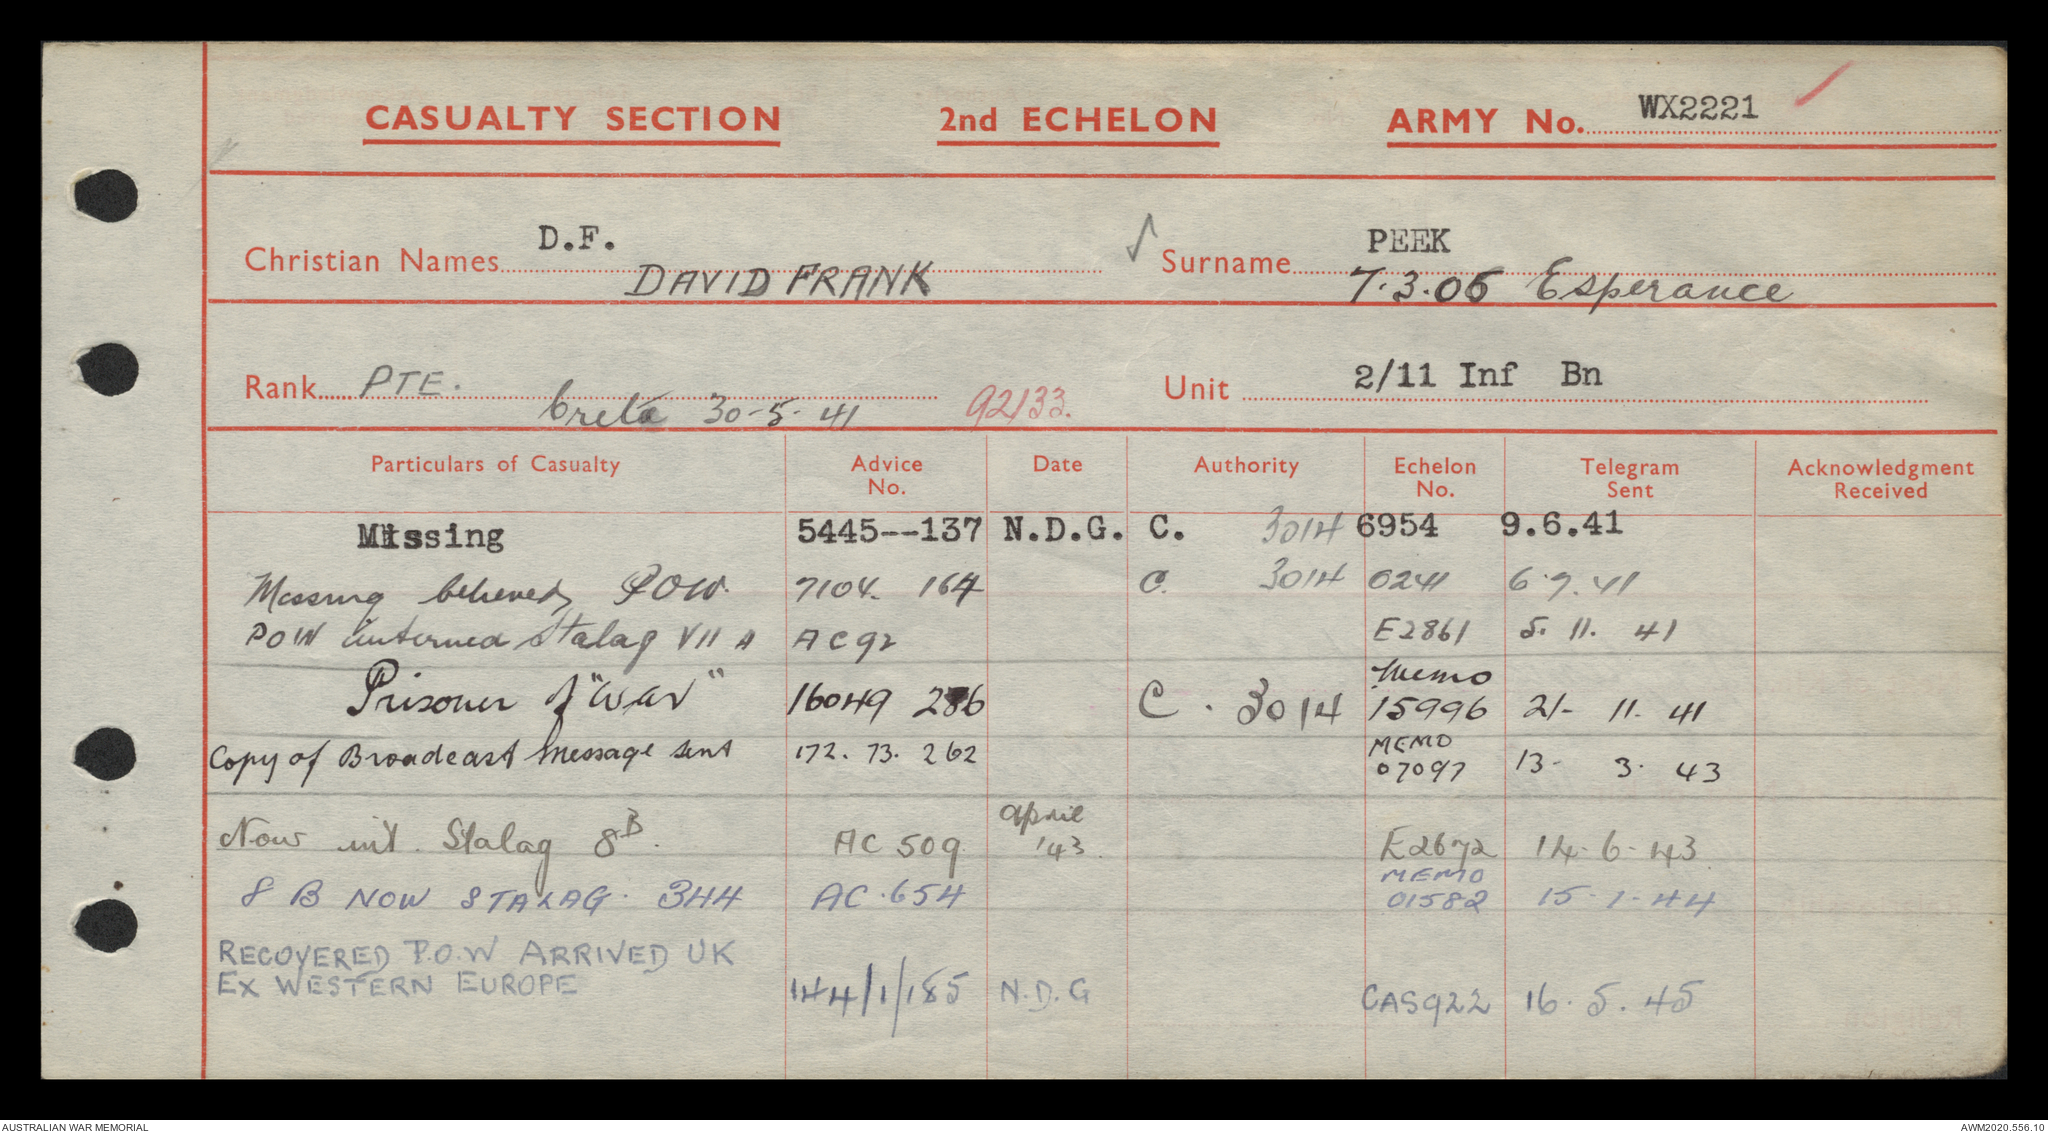 CASUALTY SECTION 2nd ECHELON ARMY No. WX2221
Christian Names D.F. Surname PEEK
DAVID FRANK 7.3.05 Esperance
Rank PTE. Unit 2/11 Inf Bn
Creta 30-5-41 92/33.
Particulars of Casualty Advice No. Date Authority Echelon No. Telegram Sent Acknowledgment Received
Missing 5445--137 N.D.G. C. 3014 6954 9.6.41
Missing believed POW. 7104. 164 C. 3014 0241 6.7.41
POW interned Stalag VII A AC92 E2861 5. 11. 41
Prisoner of "War" 16049 286 C. 3014 Memo 15996 21- 11. 41
Copy of Broadcast Message sent 172. 73. 262 MEMO 07097 13- 3. 43
Now int. Stalag 8B. AC 509 April '43. E2672 14-6-43
8 B NOW STALAG. 344 AC.654 MEMO 01582 15-1-44
RECOVERED P.O.W ARRIVED UK
EX WESTERN EUROPE 144/1/185 N.D.G CAS922 16.5.45
AUSTRALIAN WAR MEMORIAL AWM2020.556.10